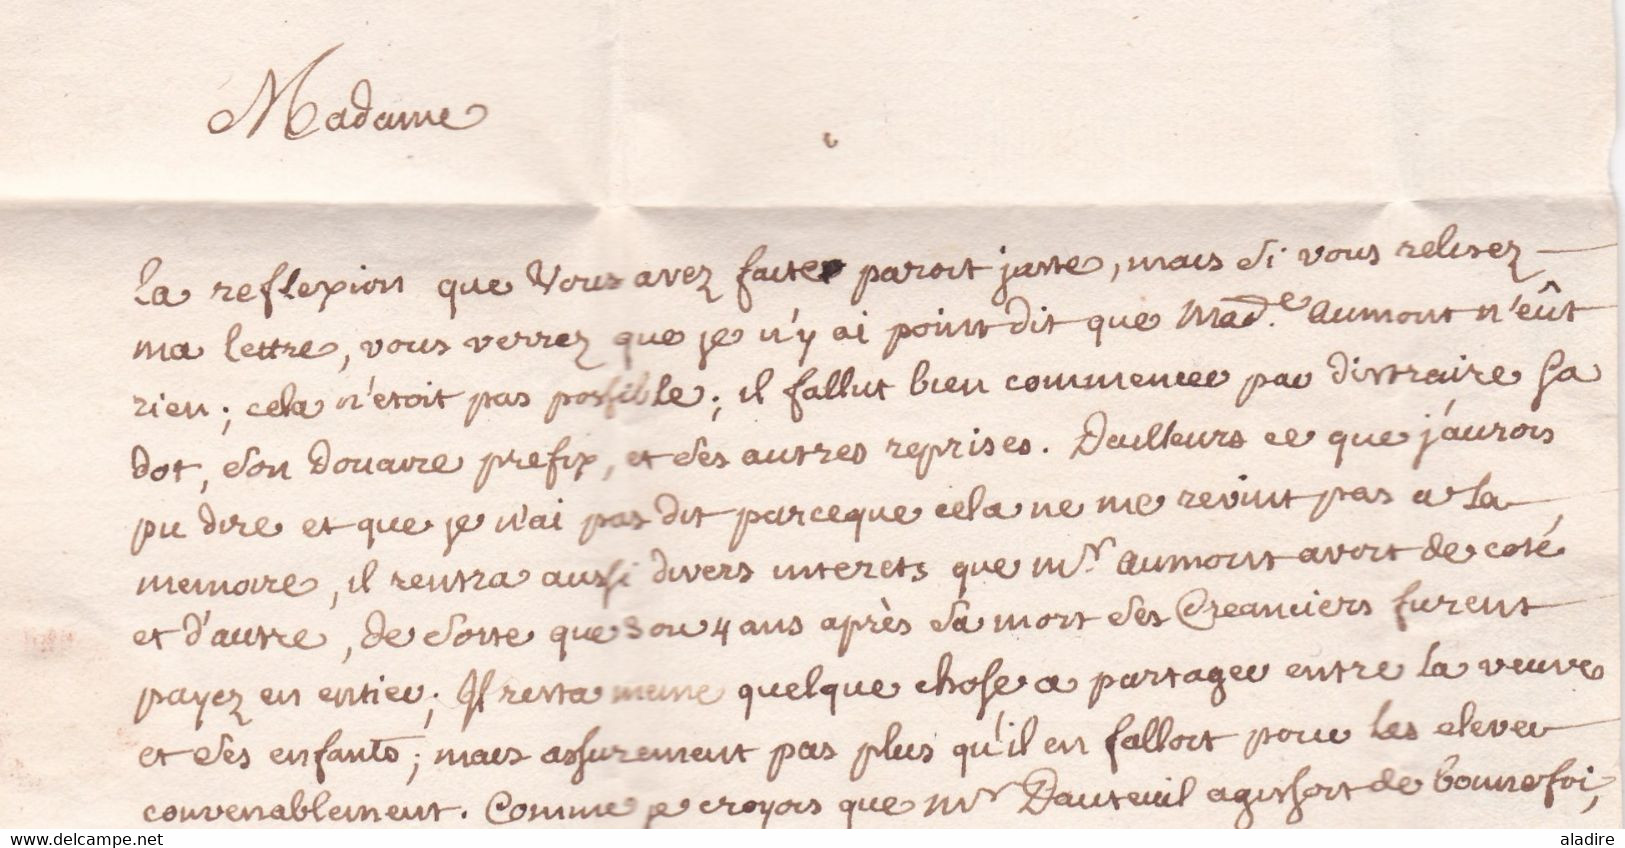 Madame
La reflexion que Vous avez faite paroit juste, mais si vous relisez
ma lettre, vous verrez que je n'y ai point dit que Mad.e Aumont n'eût
rien; cela n'etoit pas possible; il fallut bien commencer par distraire sa
dot, son douaire prefix, et ses autres reprises. Dailleurs ce que j'aurois
pu dire et que je n'ai pas dit parceque cela ne me revint pas a la
memoire, il rentra aussi divers interets que Mr. Aumont avoit de coté
et d'autre, de sorte que 3 ou 4 ans après sa mort ses Creanciers furent
payez en entier; Il resta meme quelque chose a partager entre la veuve
et ses enfants; mais assurement pas plus qu'il en falloit pour les elever
convenablement. Comme je croyois que Mr Dauteuil agissoit de bonne foi,
www.delcampe.net
aladire